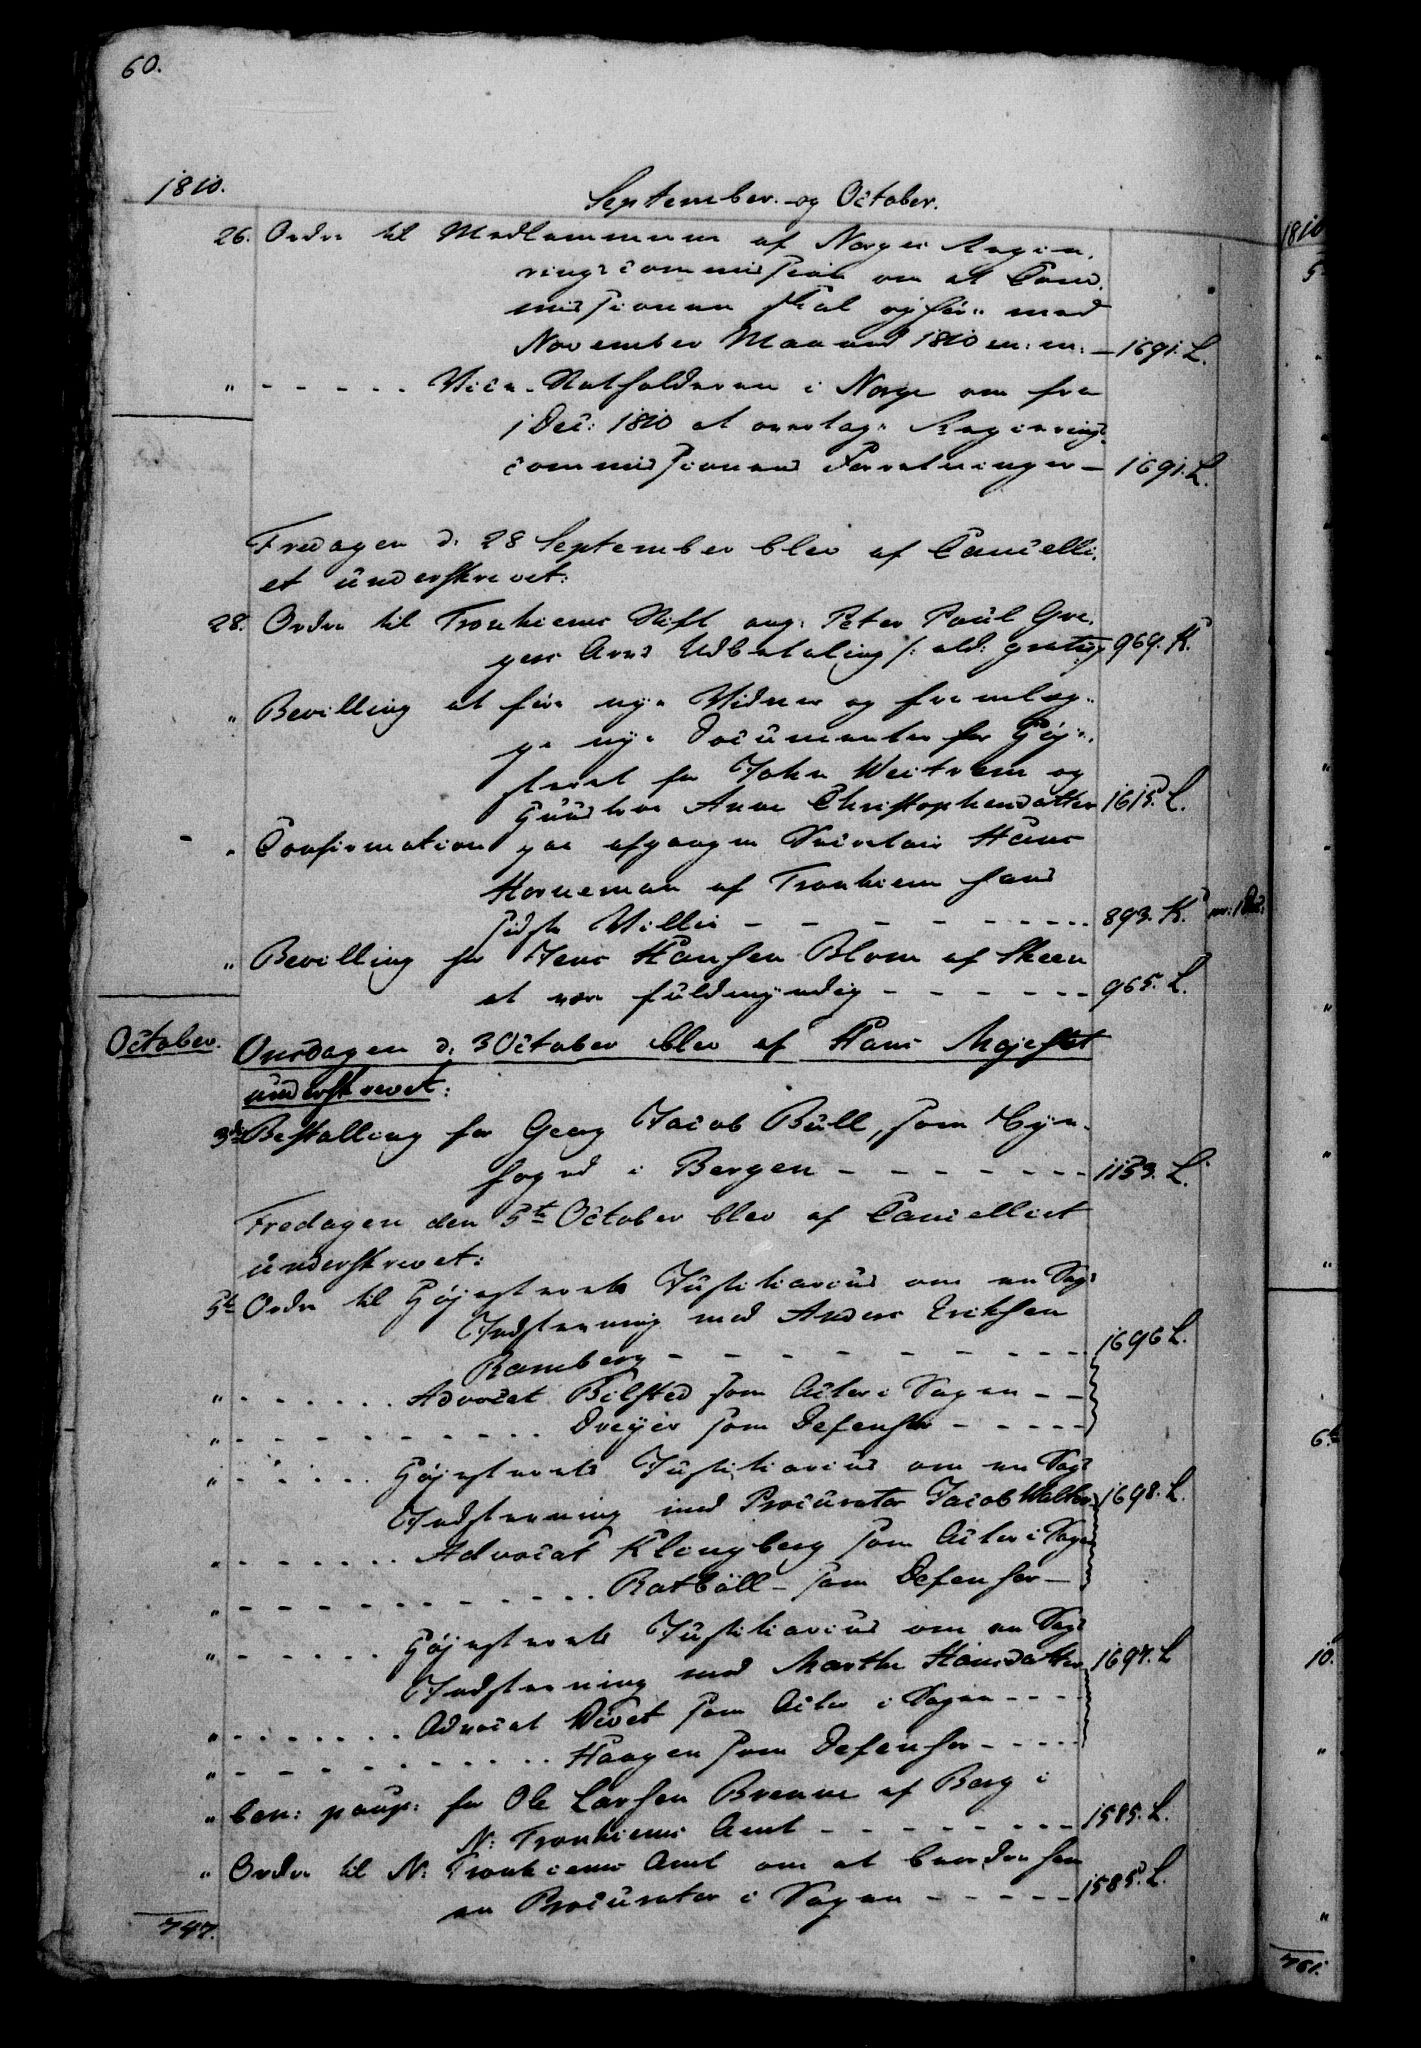 60.
1810.
September og October.
26. Ordre til Medlemmerne af Norges Regie,
rings Commission om at Com,
missionen skal ophöre med
November Maaned 1810 m: m: — 1691. L.
" - - - - - Vice-Statholderen i Norge om fra
1 Dec: 1810 at overtage Regierings
commissionens Forretninger — 1691. L.
Fredagen d. 28 September blev af Cancelli,
et underskrevet:
28. Ordre til Tronhiems Stift ang: Peter Paul Gre,
gers Arvs Udbetaling /: ald: gratis :/ 969. K.
" Bevilling at före nye Vidner og fremlæg,
ge nye Documenter for Höje,
steret for John Weitrem og
Huustroe Anne Christophersdatter 1615. L.
" Confirmation paa afgangne Secretair Hans
Horneman af Tronhiem hans
sidste Villie - - - - - - - 893. K.
" Bevilling for Jens Hansen Blom af Skeen
at være fuldmyndig - - - - - - 965. L.
October. Onsdagen d: 3 October blev af Hans Majestet
underskrevet:
3die Bestalling for Georg Jacob Bull, som Bye,
foged i Bergen - - - - - - - 1153. L.
Fredagen den 5te October blev af Cancelliet
underskrevet:
5te Ordre til Höjesterets Justitiarius om en Sags
Indstevning med Anders Eriksen
Ramberg - - - - - - - - - 1696 L.
" - - - - - - Advocat Bilsted som Actor i Sagen - -
" - - - - - - - - - - Dreyer som Defensor - - - - -
" - - - - - Höjesterets Justitiarius om en Sags
Indstevning med Procurator Jacob Walter 1698. L.
" - - - - - - - Advocat Klingberg som Actor i Sagen
" - - - - - - - - - - - - Rotböll - som Defensor —
" - - - - - - Höjesterets Justitiarius om en Sags
Indstevning med Marthe Hansdatter 1697. L
" - - - - - - - Advocat Divet som Actor i Sagen - - - -
" - - - - - - - - - - Haagen som Defensor - - - - -
" ben: paup: for Ole Larsen Brenne af Borg i
N: Tronhiems Amt - - - - - - - - - 1585. L.
" Ordre til N: Tronhiems Amt om at beordre ham
en Procurator i Sagen - - - - - 1585. L.
747.
1810
6te
10.
761.